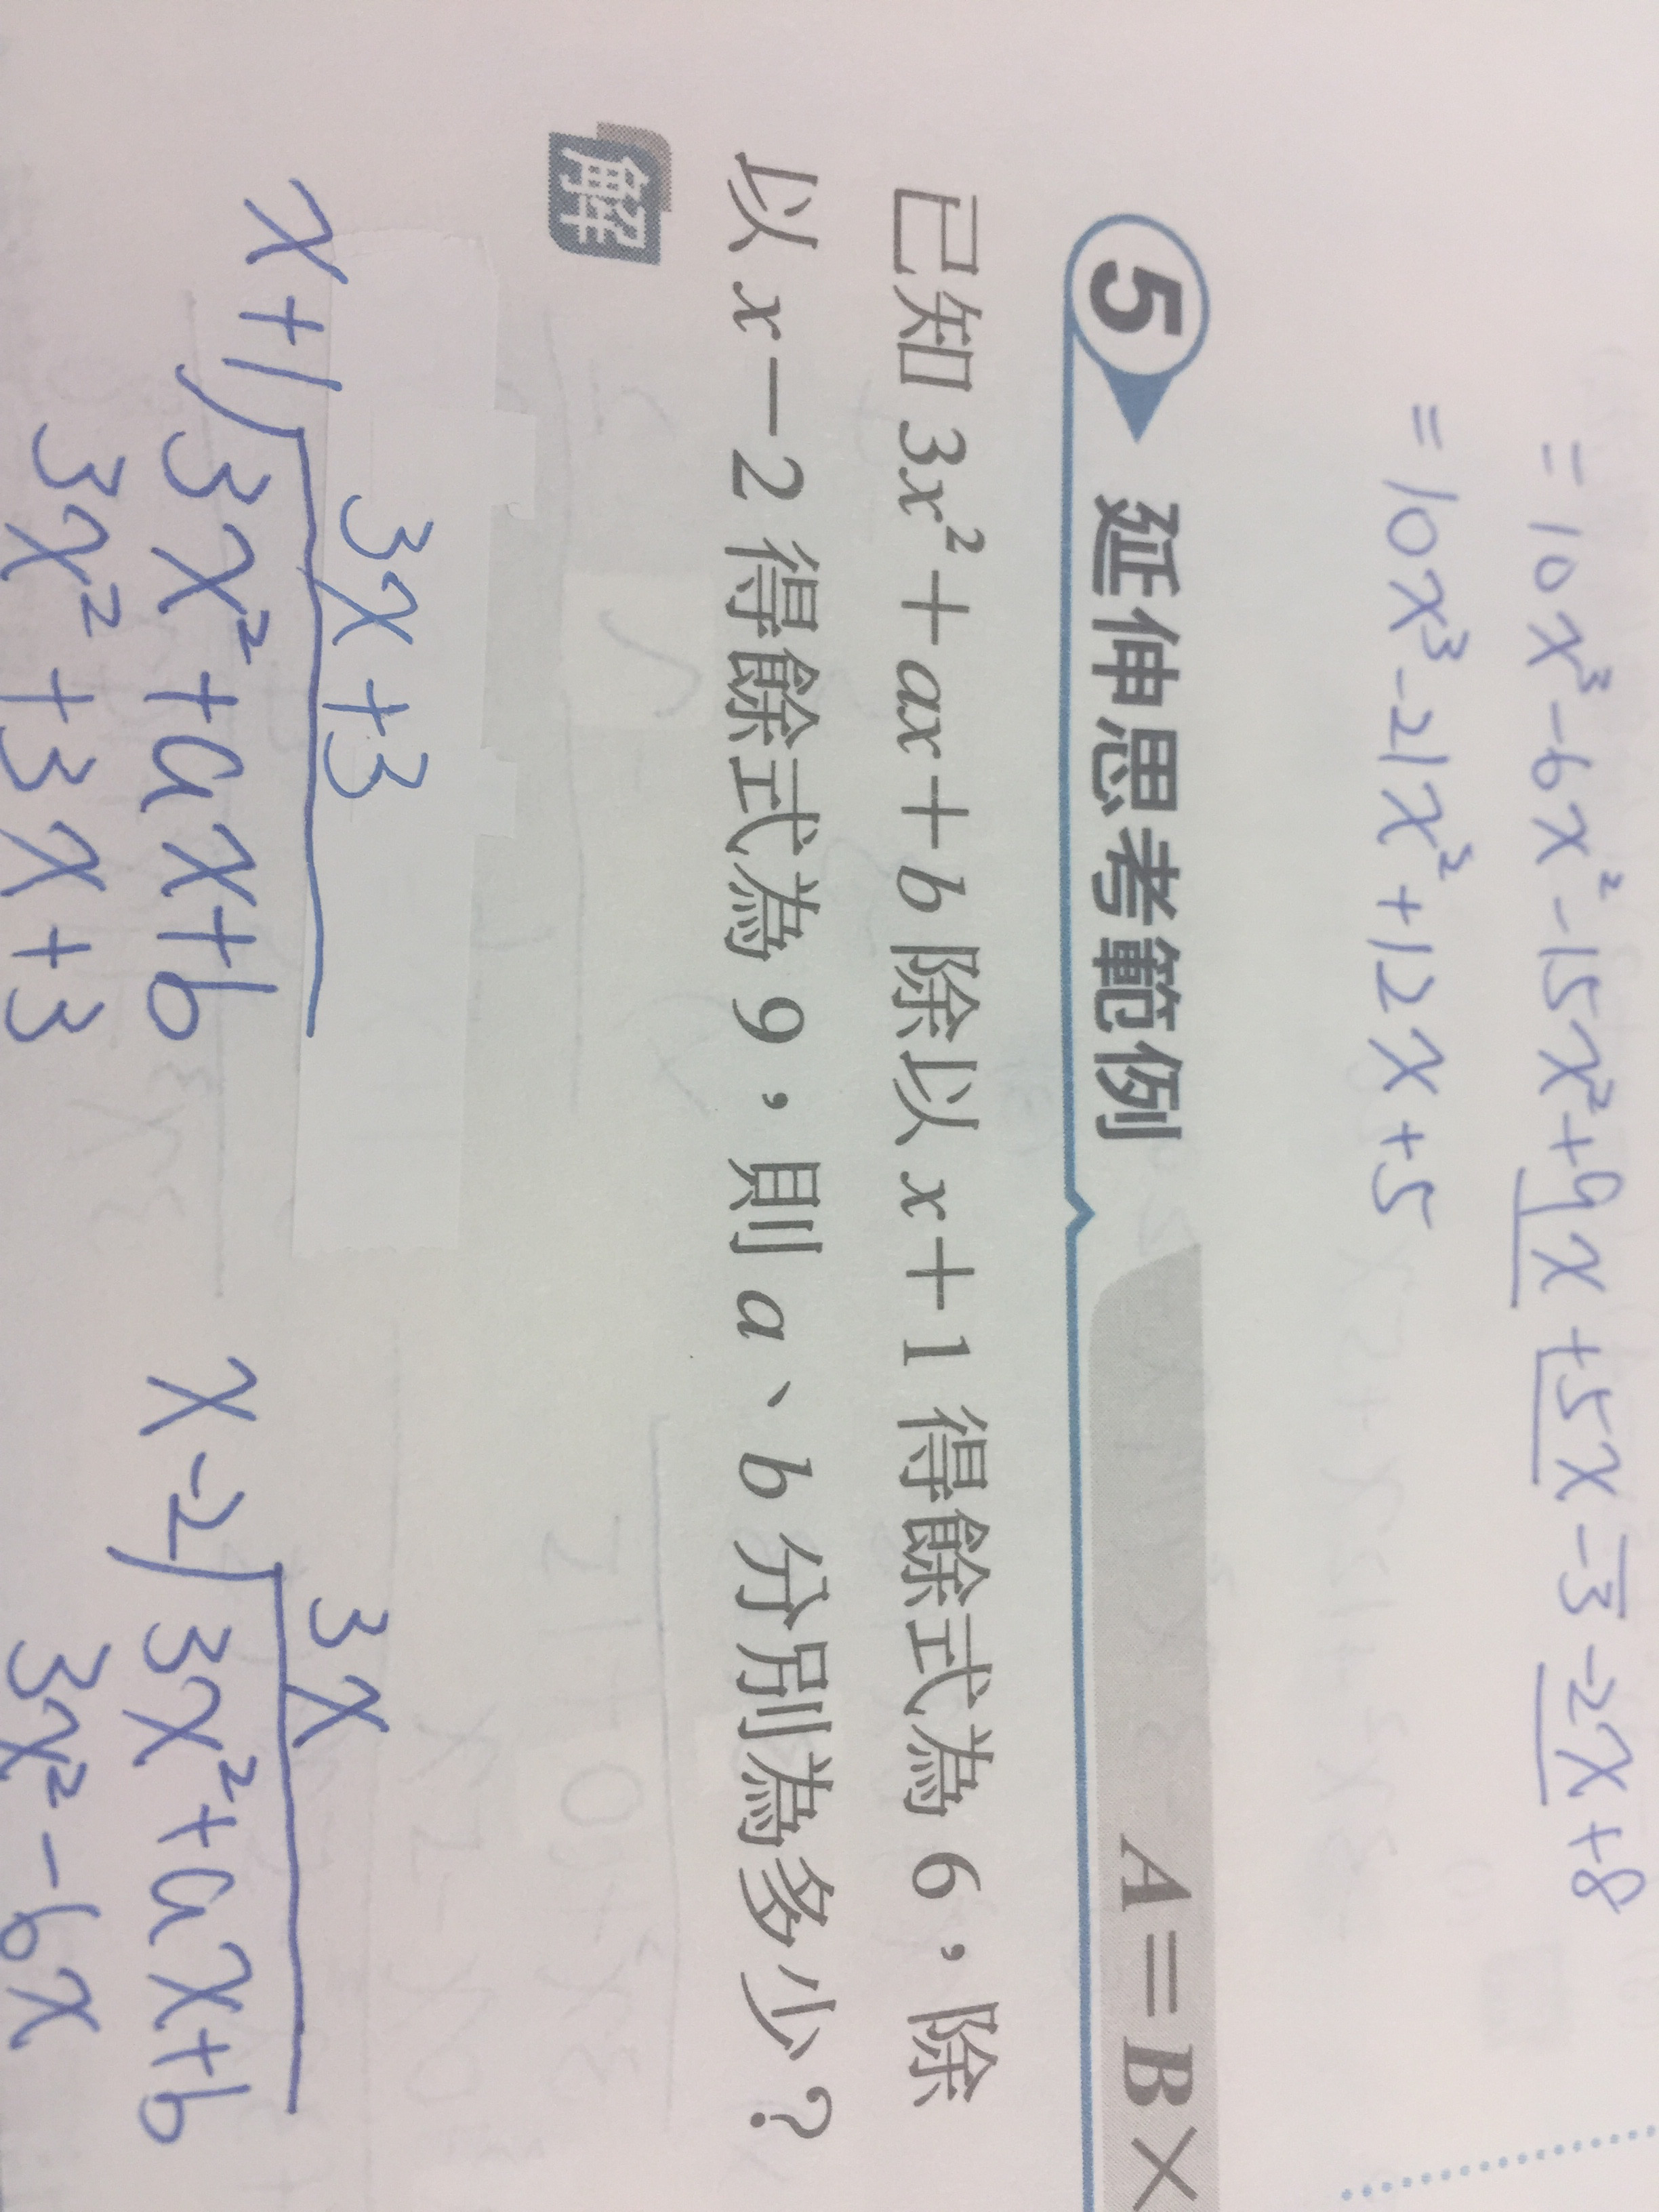 =10x³-6x²-15x²+9x+5x-3-2x+8
=10x³-21x²+12x+5
5 延伸思考範例 A=B×
已知 3x²+ax+b 除以 x+1 得餘式為 6，除
以 x-2 得餘式為 9，則 a、b 分別為多少？
解
3x+3
x+1)3x²+ax+b
3x²+3x+3
3x
x-2)3x²+ax+b
3x²-6x